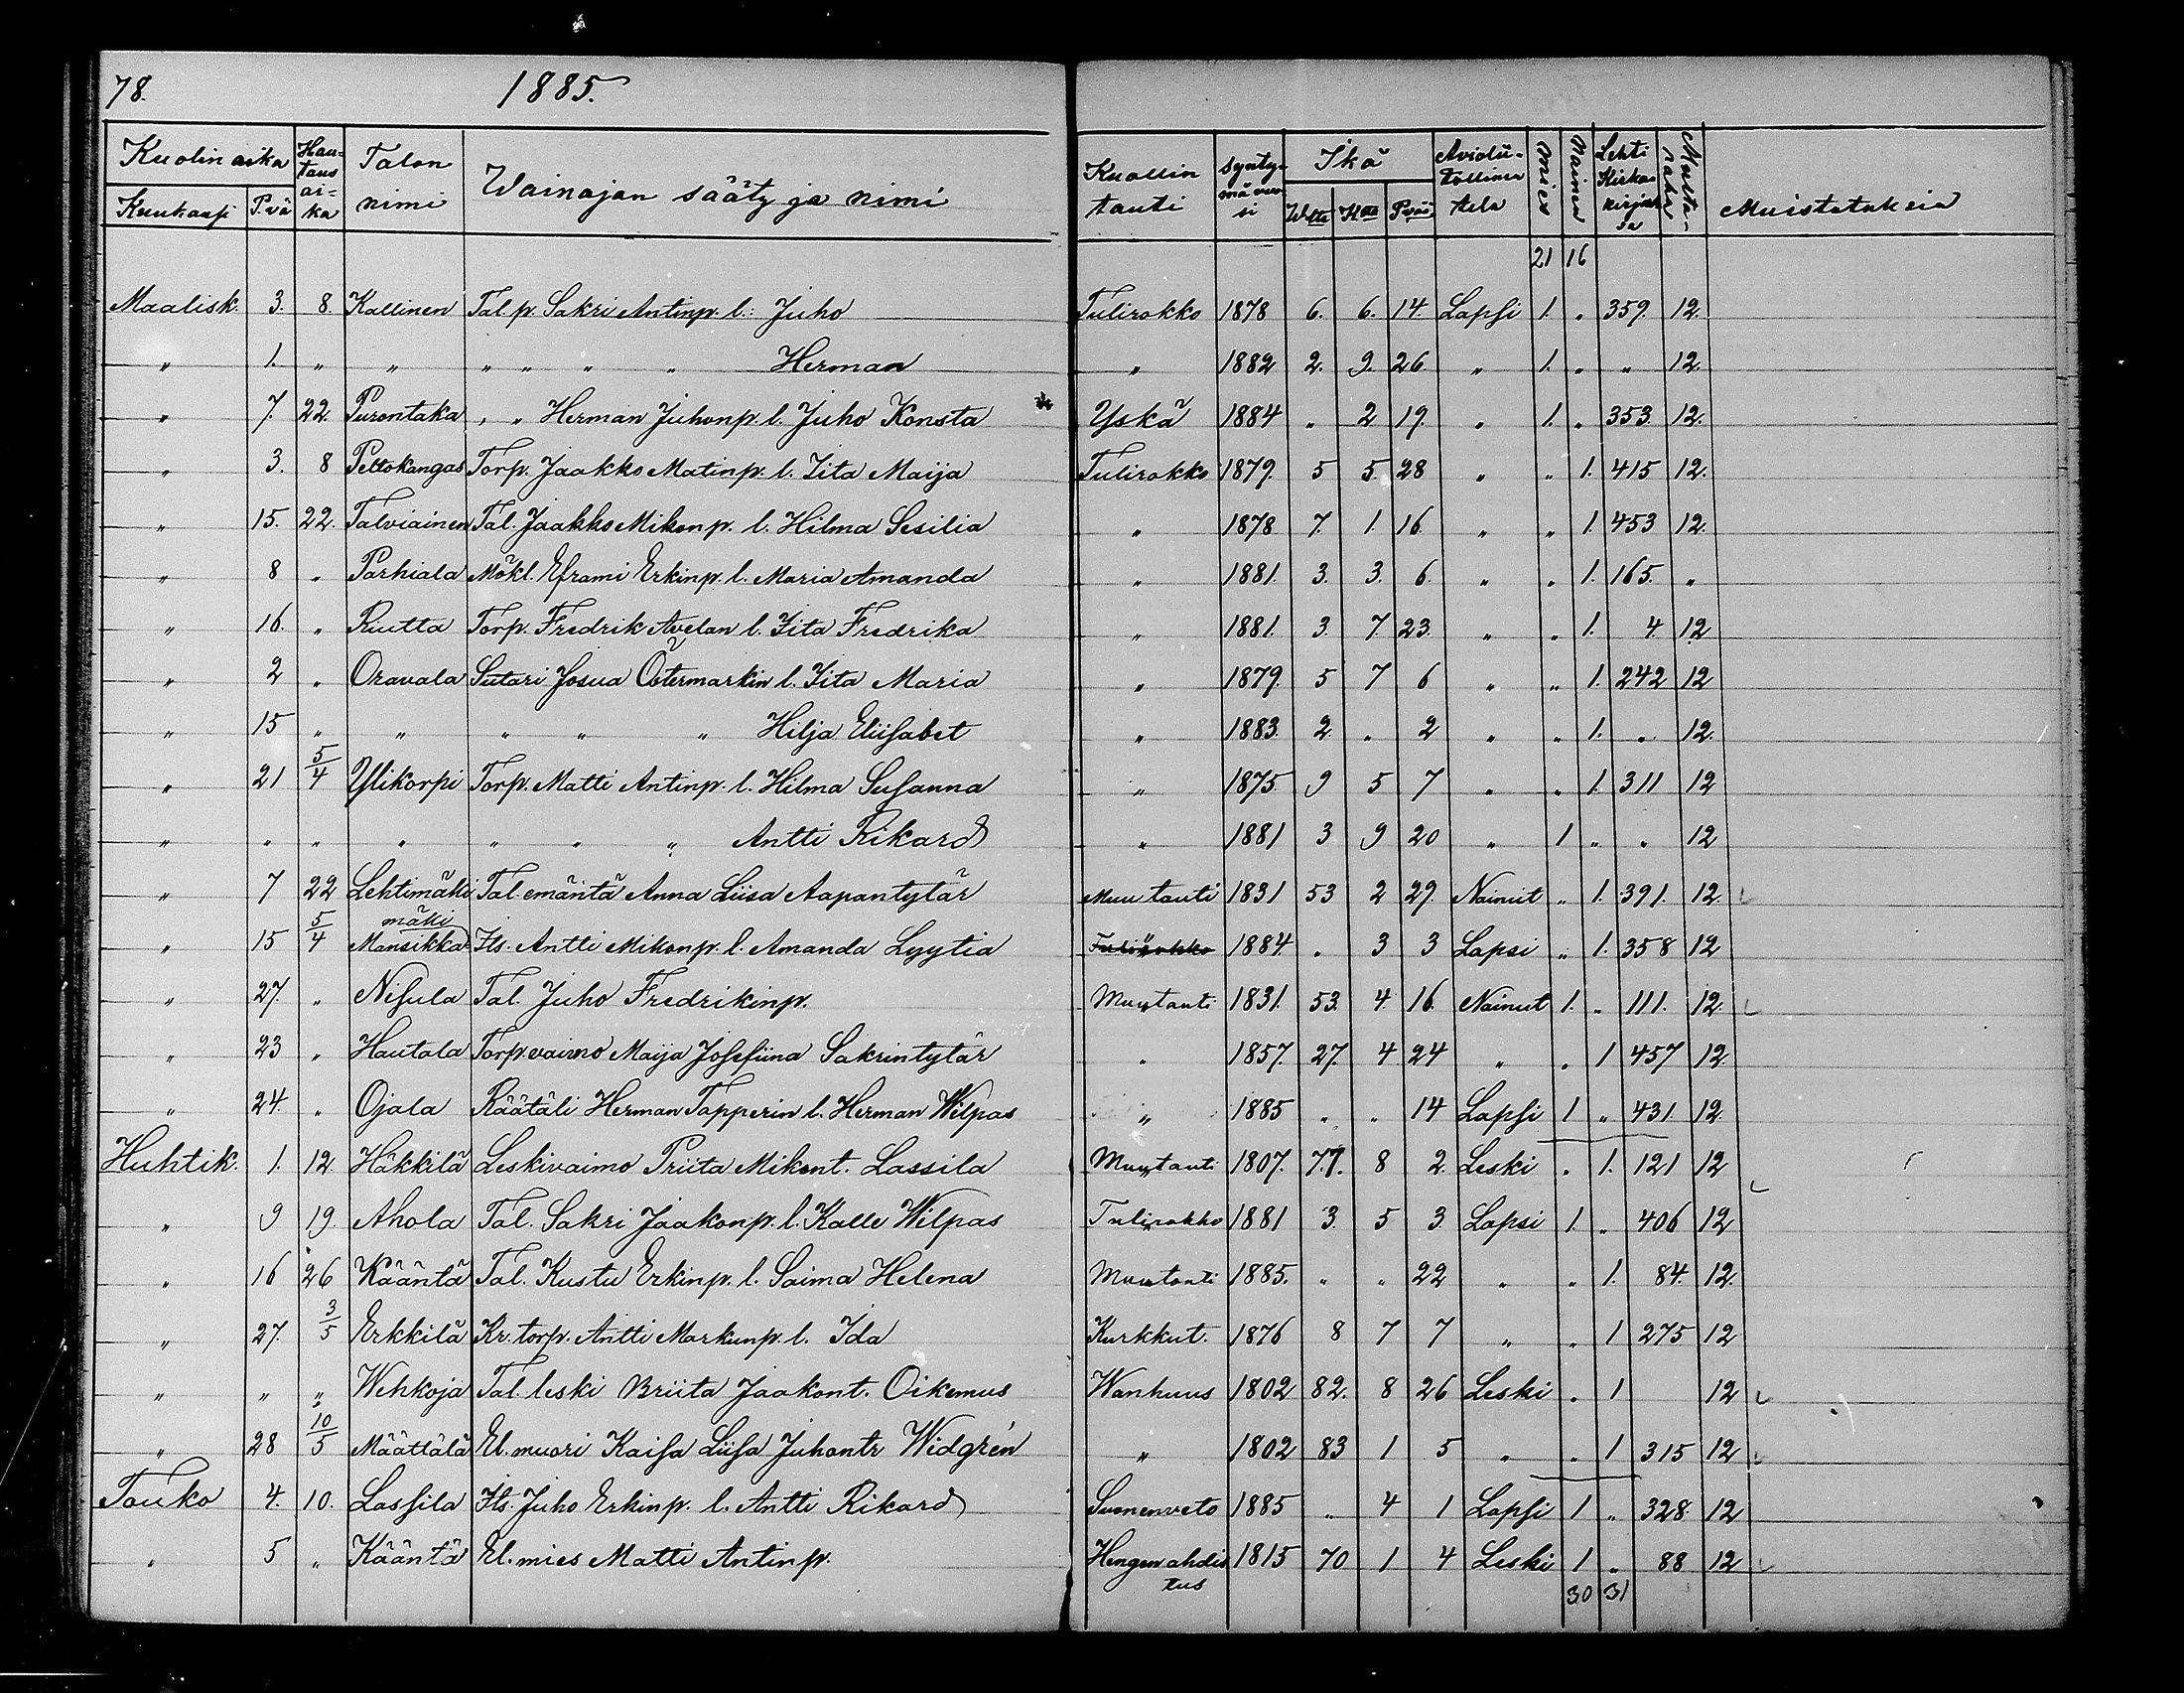 78. 1885.
Kuolin aika Hau=taus ai=ka Talon nimi Wainajan sääty ja nimi Kuollin tauti synty=mä vuosi Ikä Aviolii=tollinen tila Mies Nainen Lehti Kirkonkirjassa Multaraha Muistutuksia
Kuukausi P.vä W.tta K.tta P.vää
21 16
Maalisk. 3. 8. Kallinen Tal. p. Sakri Antinp. l.: Juho Tulirokko 1878 6. 6. 14. Lapsi 1. " 359. 12.
" 1. " " " " " " Herman " 1882 2. 9. 26. " 1. " " 12.
" 7. 22. Purontaka " " Herman Juhonp. l. Juho Konsta Yskä 1884 " 2 19. " 1. " 353. 12.
" 3. 8 Peltokangas Torp. Jaakko Matinp. l. Iita Maija Tulirokko 1879. 5 5. 28 " " 1. 415 12.
" 15. 22. Talviainen Tal. Jaakko Mikonp. l. Hilma Sesilia " 1878 7. 1. 16. " " 1. 453 12.
" 8 " Parhiala Mökl. Eframi Erkinp. l. Maria Amanda " 1881. 3. 3. 6. " " 1. 165. "
" 16. " Riutta Torp. Fredrik Avelan l. Iita Fredrika " 1881. 3. 7. 23. " " 1. 4. 12
" 2 " Oravala Sutari Josua Östermarkin l. Iita Maria " 1879. 5 7 6 " " 1. 242 12
" 15 " " " " " Hilja Eliisabet " 1883. 2. " 2 " " 1. " 12.
" 21 5/4 Ylikorpi Torp. Matti Antinp. l. Hilma Susanna " 1875. 9 5 7 " " 1. 311 12
" " " " " " " Antti Rikard " 1881 3 9 20 " 1 " " 12
" 7 22 Lehtimäki Tal. emäntä Anna Liisa Aapantytär Muu tauti 1831 53 2 29. Nainut " 1. 391. 12.
" 15 5/4 Mansikkamäki Its. Antti Mikonp. l. Amanda Lyytia Tulirokko 1884. " 3 3 Lapsi " 1. 358 12
" 27. " Nisula Tal. Juho Fredrikinp. Muutauti 1831. 53. 4. 16. Nainut 1. " 111. 12.
" 23 " Hautala Torp. vaimo Maija Josefiina Sakrintytär " 1857. 27. 4 24 " " 1 457 12.
" 24. " Ojala Räätäli Herman Tapperin l. Herman Wilpas " 1885 " " 14 Lapsi 1 " 431. 12.
Huhtik. 1. 12. Häkkilä Leskivaimo Priita Mikont. Lassila Muutauti 1807. 77. 8 2. Leski " 1. 121 12
" 9 19. Ahola Tal. Sakri Jaakonp. l. Kalle Wilpas Tulirokko 1881 3. 5 3. Lapsi 1. " 406 12
" 16 26 Kääntä Tal. Kustu Erkinp. l. Saima Helena Muutauti 1885. " " 22 " " 1. 84. 12.
" 27. 3/5 Erkkilä Kr. torp. Antti Markunp. l. Ida Kurkkut. 1876 8 7 7 " " 1 275 12
" " " Wehkoja Tal. leski Briita Jaakont. Oikemus Wanhuus 1802 82. 8 26 Leski " 1 12
" 28 10/5 Määttälä El. muori Kaisa Liisa Juhontr Widgrén " 1802 83 1 5 " " 1 315 12
Touko 4. 10. Lassila Its. Juho Erkinp. l. Antti Rikard Suonenveto 1885 " 4 1 Lapsi 1 " 328. 12
" 5 " Kääntä El. mies Matti Antinp. Hengenahdistus 1815 70 1 4 Leski 1 " 88 12
30 31